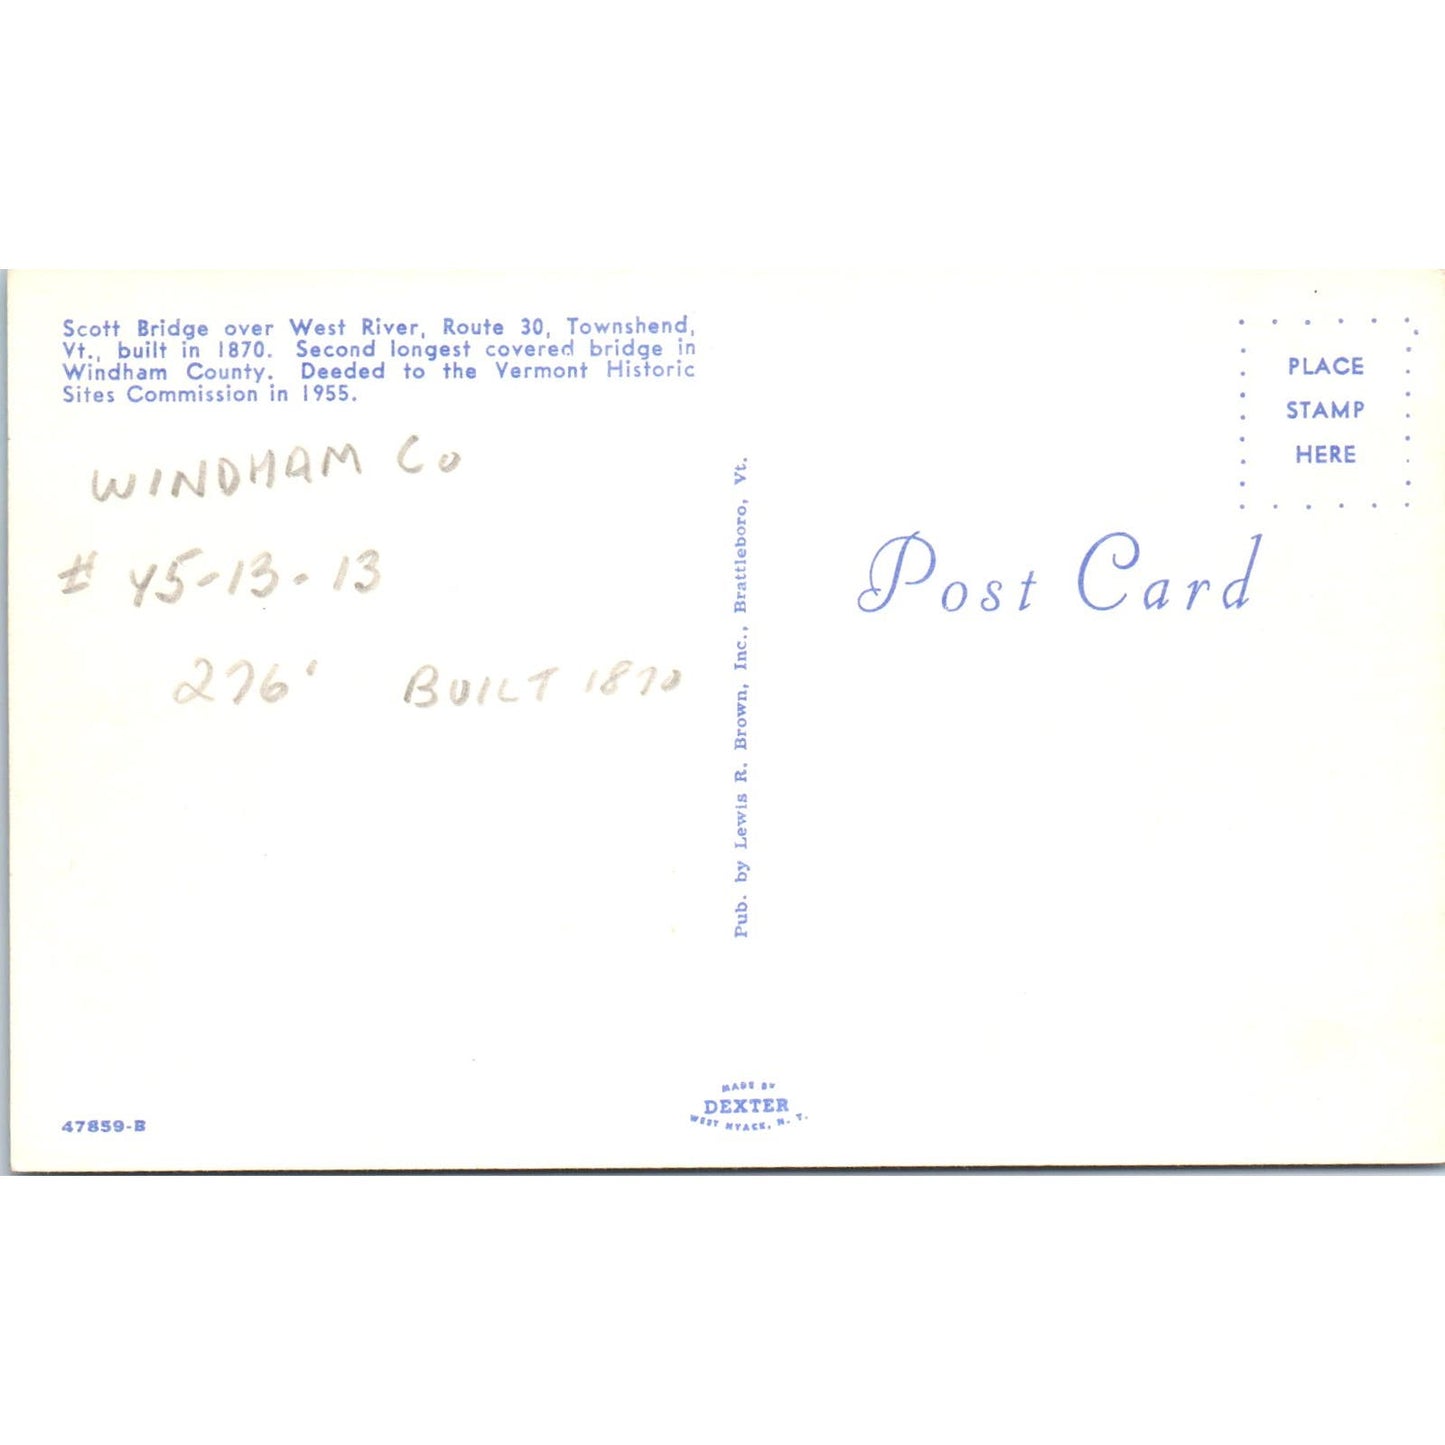 Scott Bridge over West River, Route 30, Townshend,
Vt., built in 1870. Second longest covered bridge in
Windham County. Deeded to the Vermont Historic
Sites Commission in 1955.
WINDHAM Co
# 45-13-13
276' BUILT 1870
47859-B
Pub. by Lewis R. Brown, Inc., Brattleboro, Vt.
MADE BY
DEXTER
WEST NYACK, N. Y.
PLACE
STAMP
HERE
Post Card